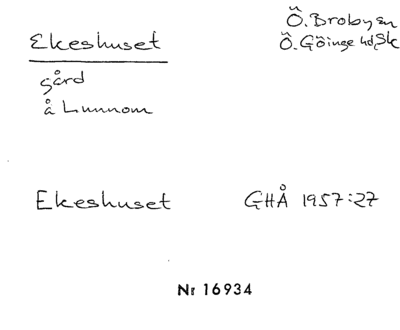 Ekeshuset
Ö. Broby sn
Ö. Göinge hd, Sk
gård
å Lunnom
Ekeshuset GHÅ 1957:27
Nr 16934